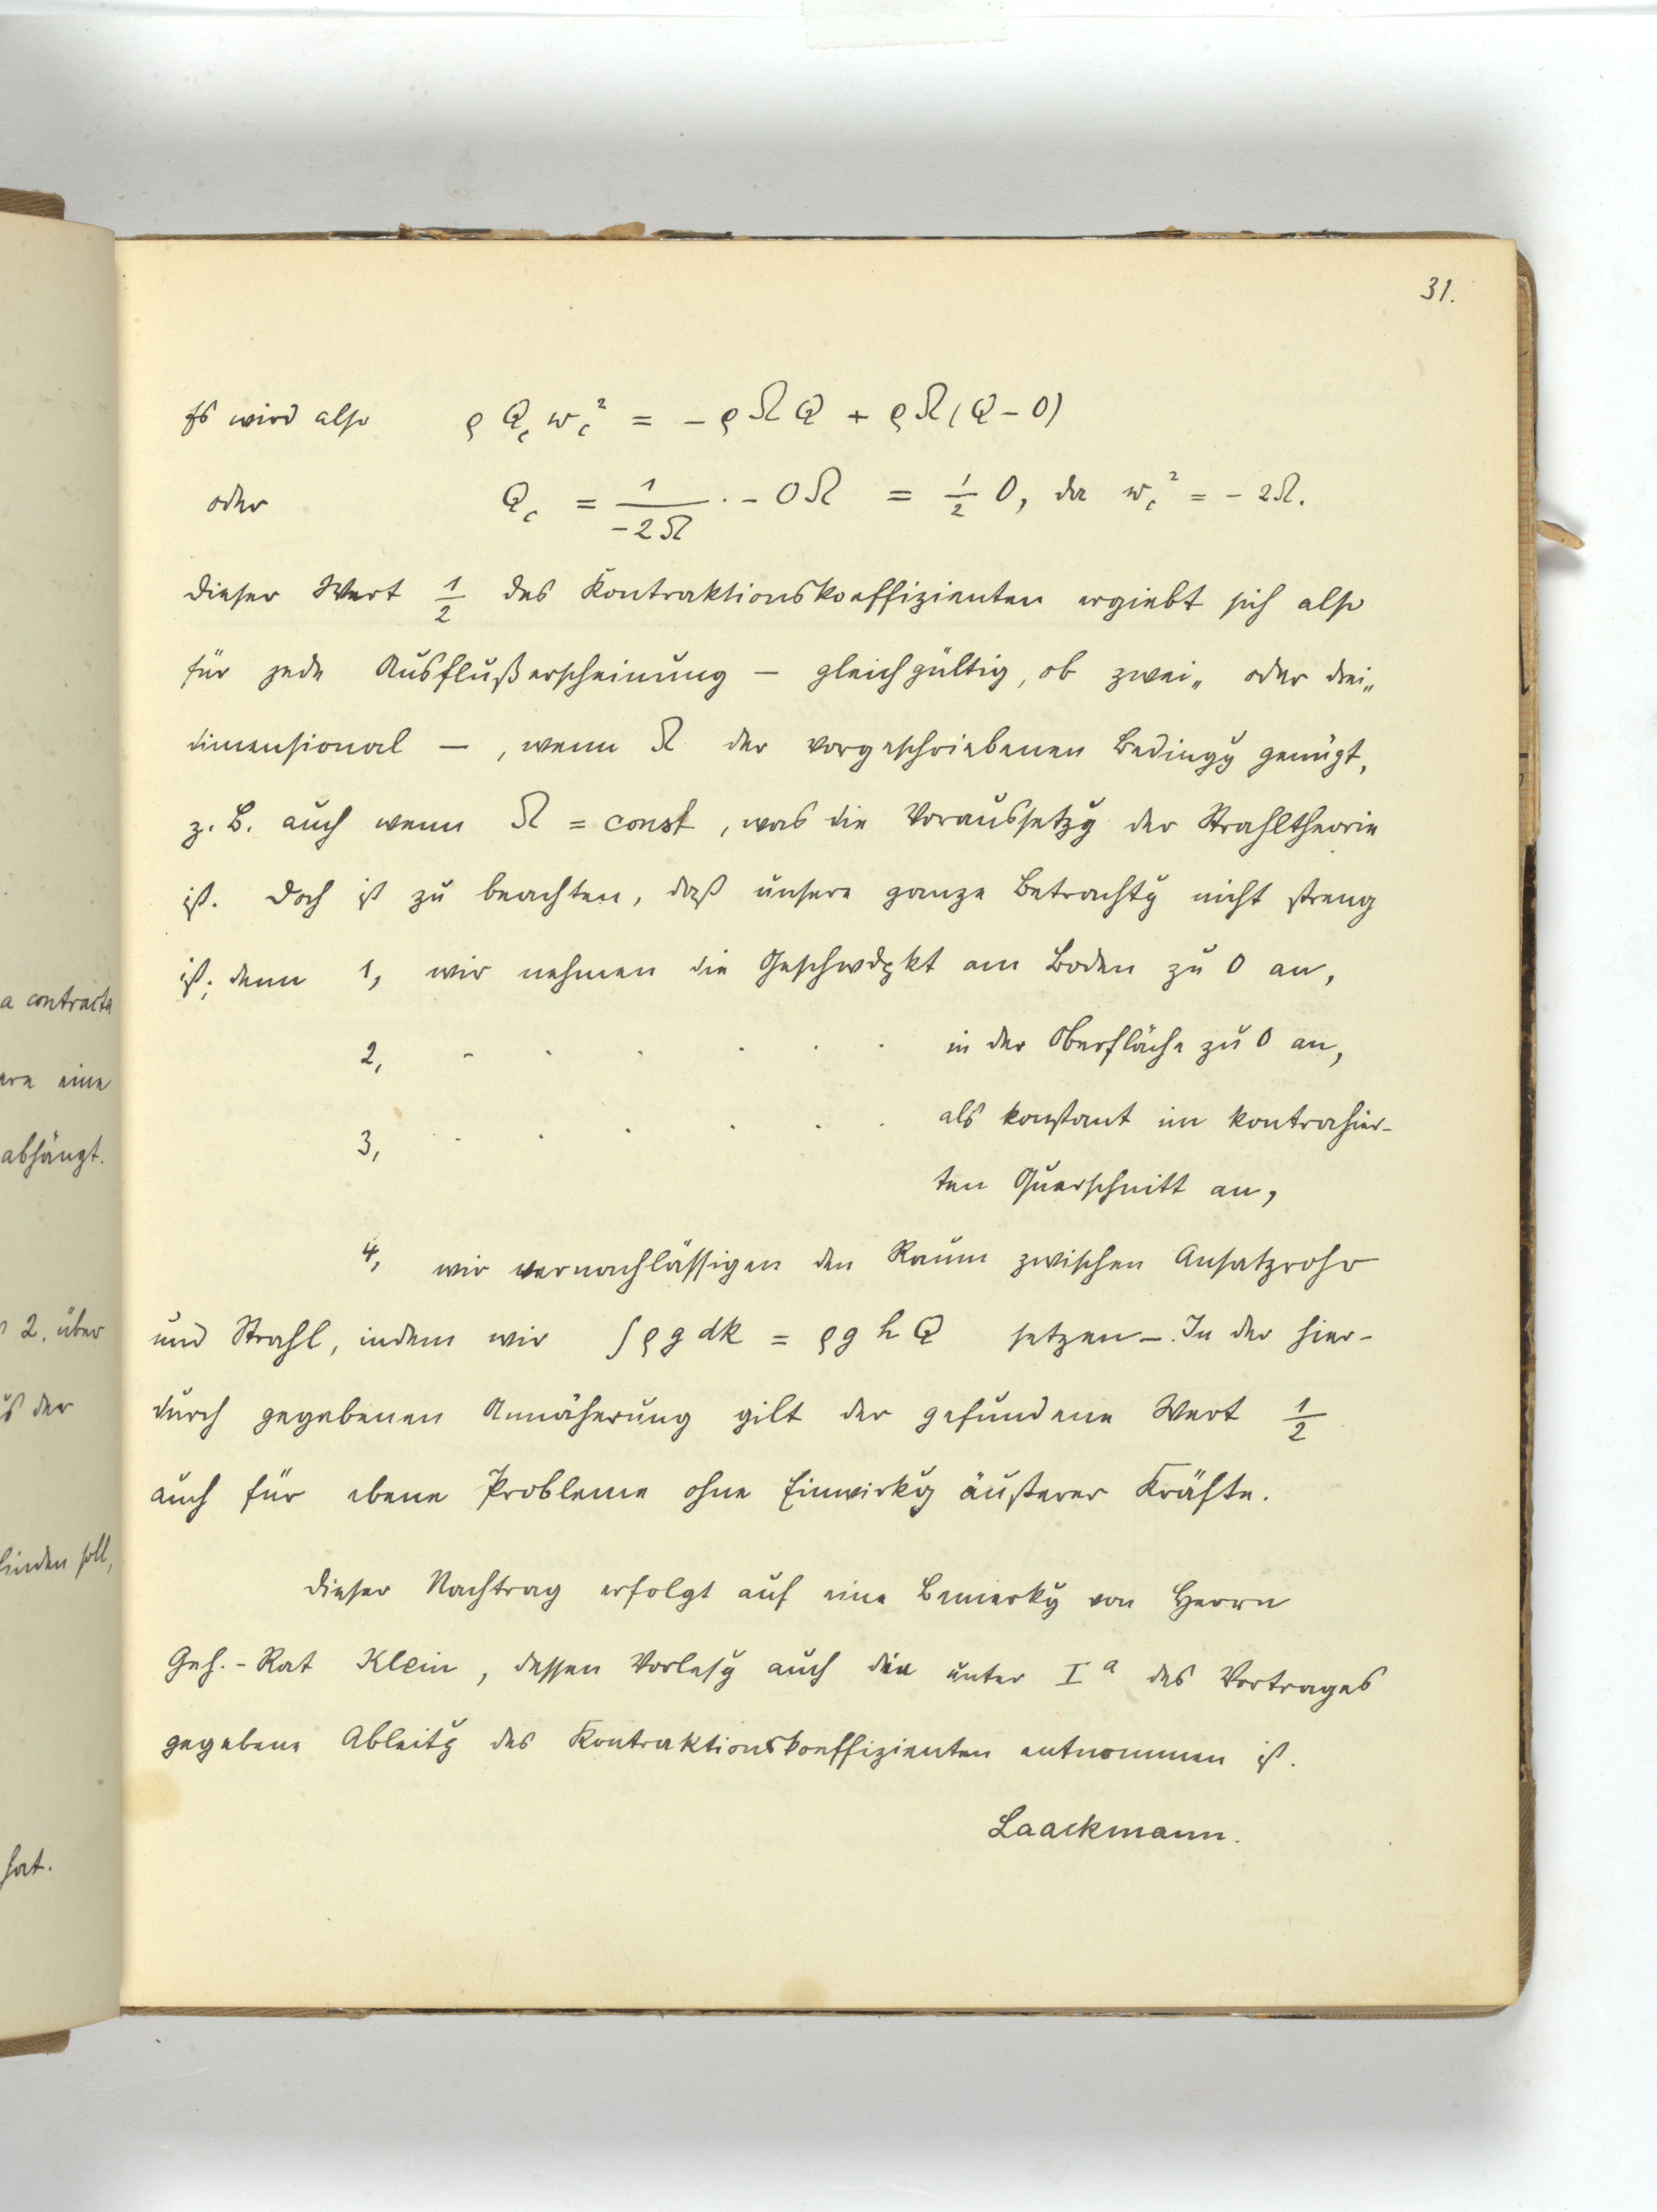 31.
Es wird also ρ Q_c w_c² = - ρ Ω Q + ρ Ω (Q - O)
oder Q_c = 1/(-2Ω) · - O Ω = 1/2 O, da w_c² = - 2Ω.
Dieser Wert 1/2 des Kontraktionskoeffizienten ergiebt sich also
für jede Ausflußerscheinung — gleichgültig, ob zwei„ oder drei„
dimensional —, wenn Ω der vorgeschriebenen Bedingg genügt,
z. B. auch wenn Ω = const, was die Voraussetzg der Strahltheorie
ist. Doch ist zu beachten, daß unsere ganze Betrachtg nicht streng
ist; denn 1, wir nehmen die Geschwdgkt am Boden zu 0 an,
2, - · · · · · in der Oberfläche zu 0 an,
3, · · · · · · als konstant im kontrahier-
ten Querschnitt an,
4, wir vernachlässigen den Raum zwischen Ansatzrohr
und Strahl, indem wir ∫ ρ g dk = ρ g h Q setzen —. In der hier-
durch gegebenen Annäherung gilt der gefundene Wert 1/2
auch für ebene Probleme ohne Einwirkg äußerer Kräfte.
Dieser Nachtrag erfolgt auf eine Bemerkg von Herrn
Geh.-Rat Klein, dessen Vorlesg auch die unter I a des Vortrages
gegebene Ableitg des Kontraktionskoeffizienten entnommen ist.
Laackmann.
a contracta
eine
abhängt.
2. über
der
finden soll,
hat.